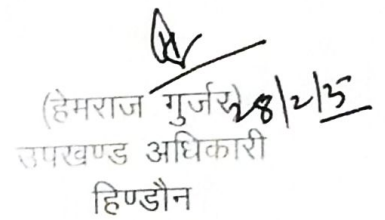 (हेमराज गुर्जर) 28/2/25
उपखण्ड अधिकारी
हिण्डौन